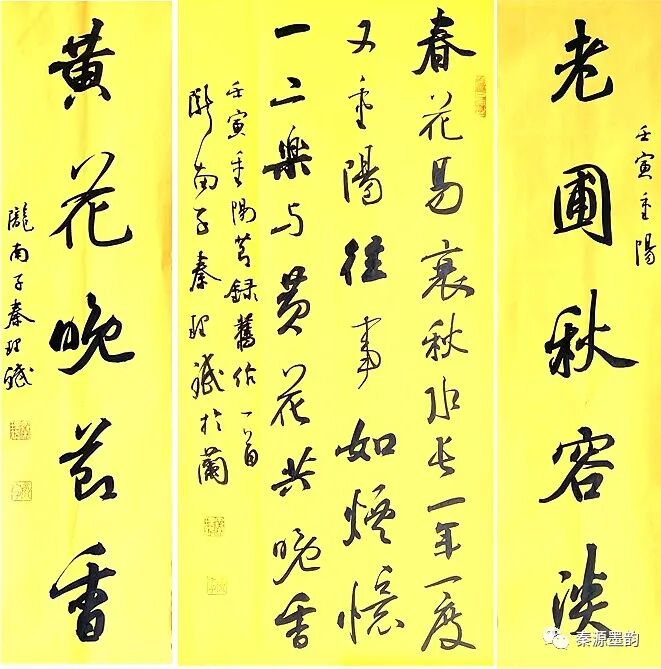 壬寅重陽
老圃秋容淡
春花易衰秋水长一年一度
又重陽往事如煙憶
一二樂与黄花共晚香
壬寅重陽节録舊作一首
隴南子秦理斌於蘭
黄花晚节香
隴南子秦理斌
秦源墨韵